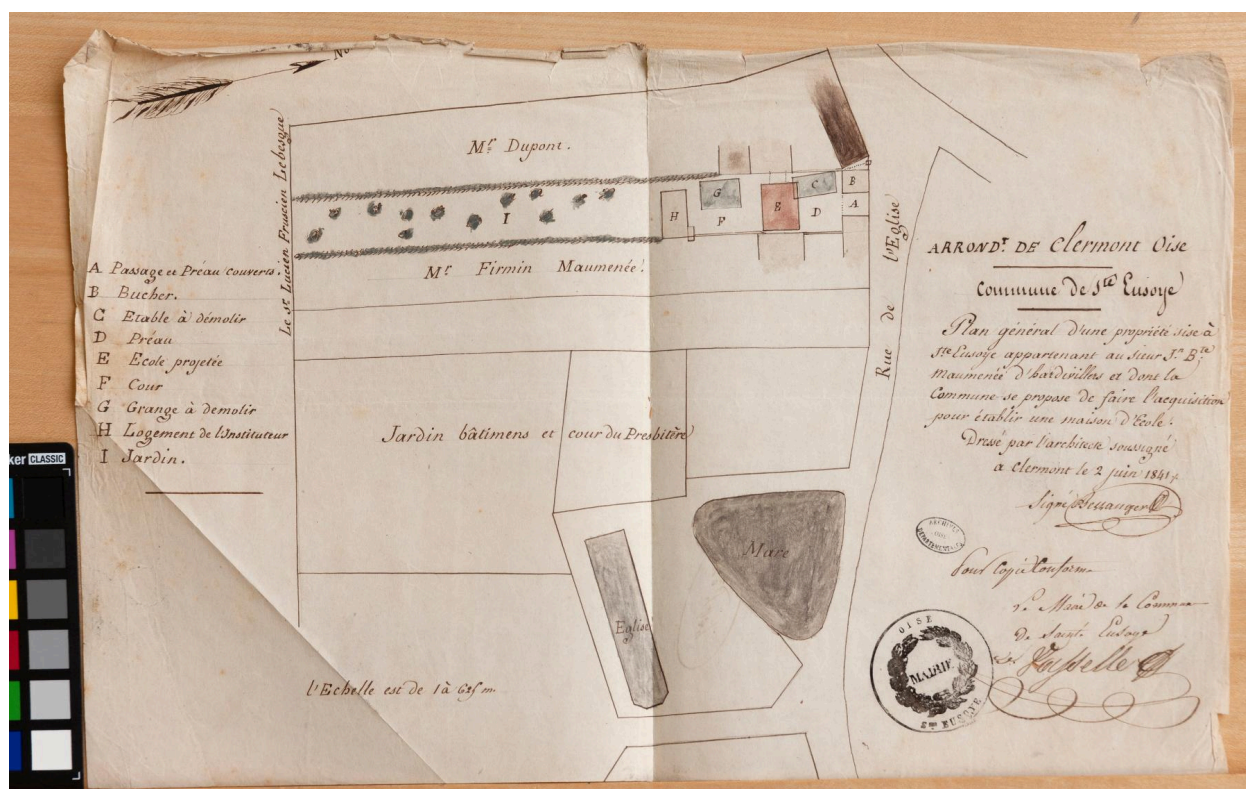 No
Mr. Dupont.
Le Sr. Lucien Fruscien Lebesgue
I
H
G
F
E
C
D
B
A
Mr. Firmin Maumenée.
Rue de l'Eglise
A Passage et Préau couverts.
B Bucher.
C Etable à démolir
D Préau
E Ecole projetée
F Cour
G Grange à demolir
H Logement de l'Instituteur
I Jardin.
Jardin bâtimens et cour du Presbitère
Mare
Eglise
l'Echelle est de 1 à 625 m.
ARRONDt. DE Clermont Oise
Commune de Ste Eusoye
Plan général d'une propriété sise à
Ste Eusoye appartenant au sieur Jn. Bte.
Maumenée d'hardivillers et dont la
Commune se propose de faire l'acquisition
pour établir une maison d'Ecole.
Dressé par l'architecte soussigné
a Clermont le 2 juin 1841.
Signé
ARCHIVES
DÉPARTEMENTALES
Pour Copie Conforme
Le Maire de la Commune
De Sainte Eusoye
OISE
MAIRIE
STE EUSOYE
ker CLASSIC